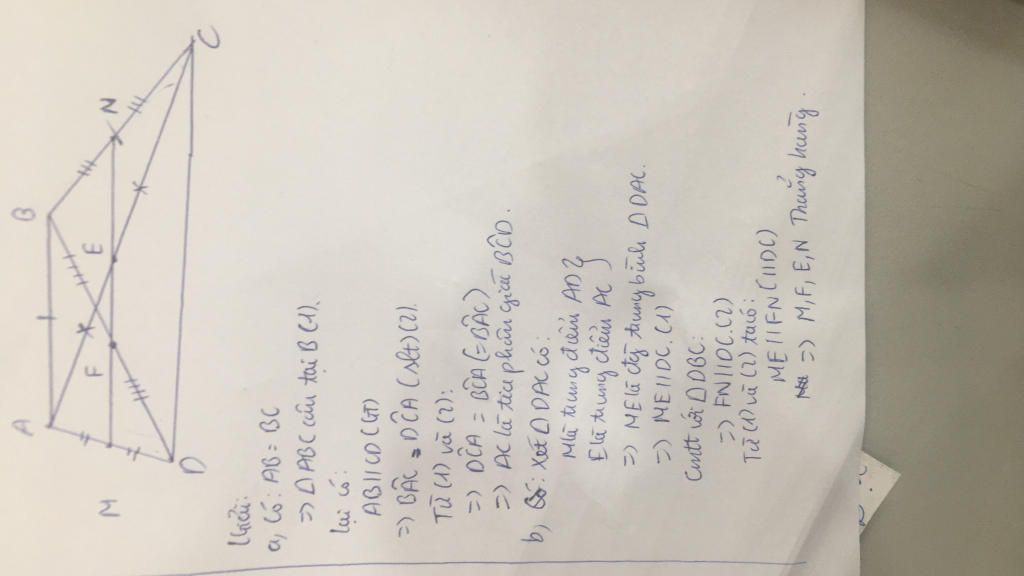 A B
M F E N
D C
Giải:
a, Có: AB = BC
=> ΔABC cân tại B (1).
Lại có:
AB//CD (GT)
=> BÂC = DĈA (slt) (2).
Từ (1) và (2):
=> DĈA = BĈA (= BÂC)
=> AC là tia phân giác BĈD.
b, Xét ΔDAC có:
M là trung điểm AD }
E là trung điểm AC
=> ME là đg trung bình ΔDAC.
=> ME//DC. (1)
Cmtt với ΔDBC:
=> FN//DC. (2)
Từ (1) và (2) ta có:
ME//FN (//DC)
=> M, F, E, N Thẳng hàng.